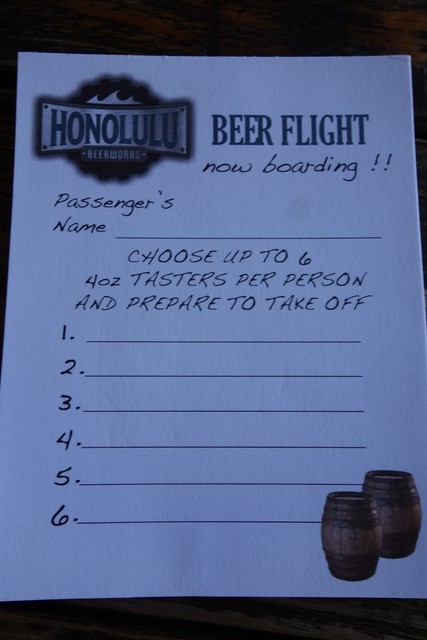 HONOLULU
BEERWORKS
BEER FLIGHT
now boarding !!
Passenger's
Name
CHOOSE UP TO 6
4oz TASTERS PER PERSON
AND PREPARE TO TAKE OFF
1.
2.
3.
4.
5.
6.